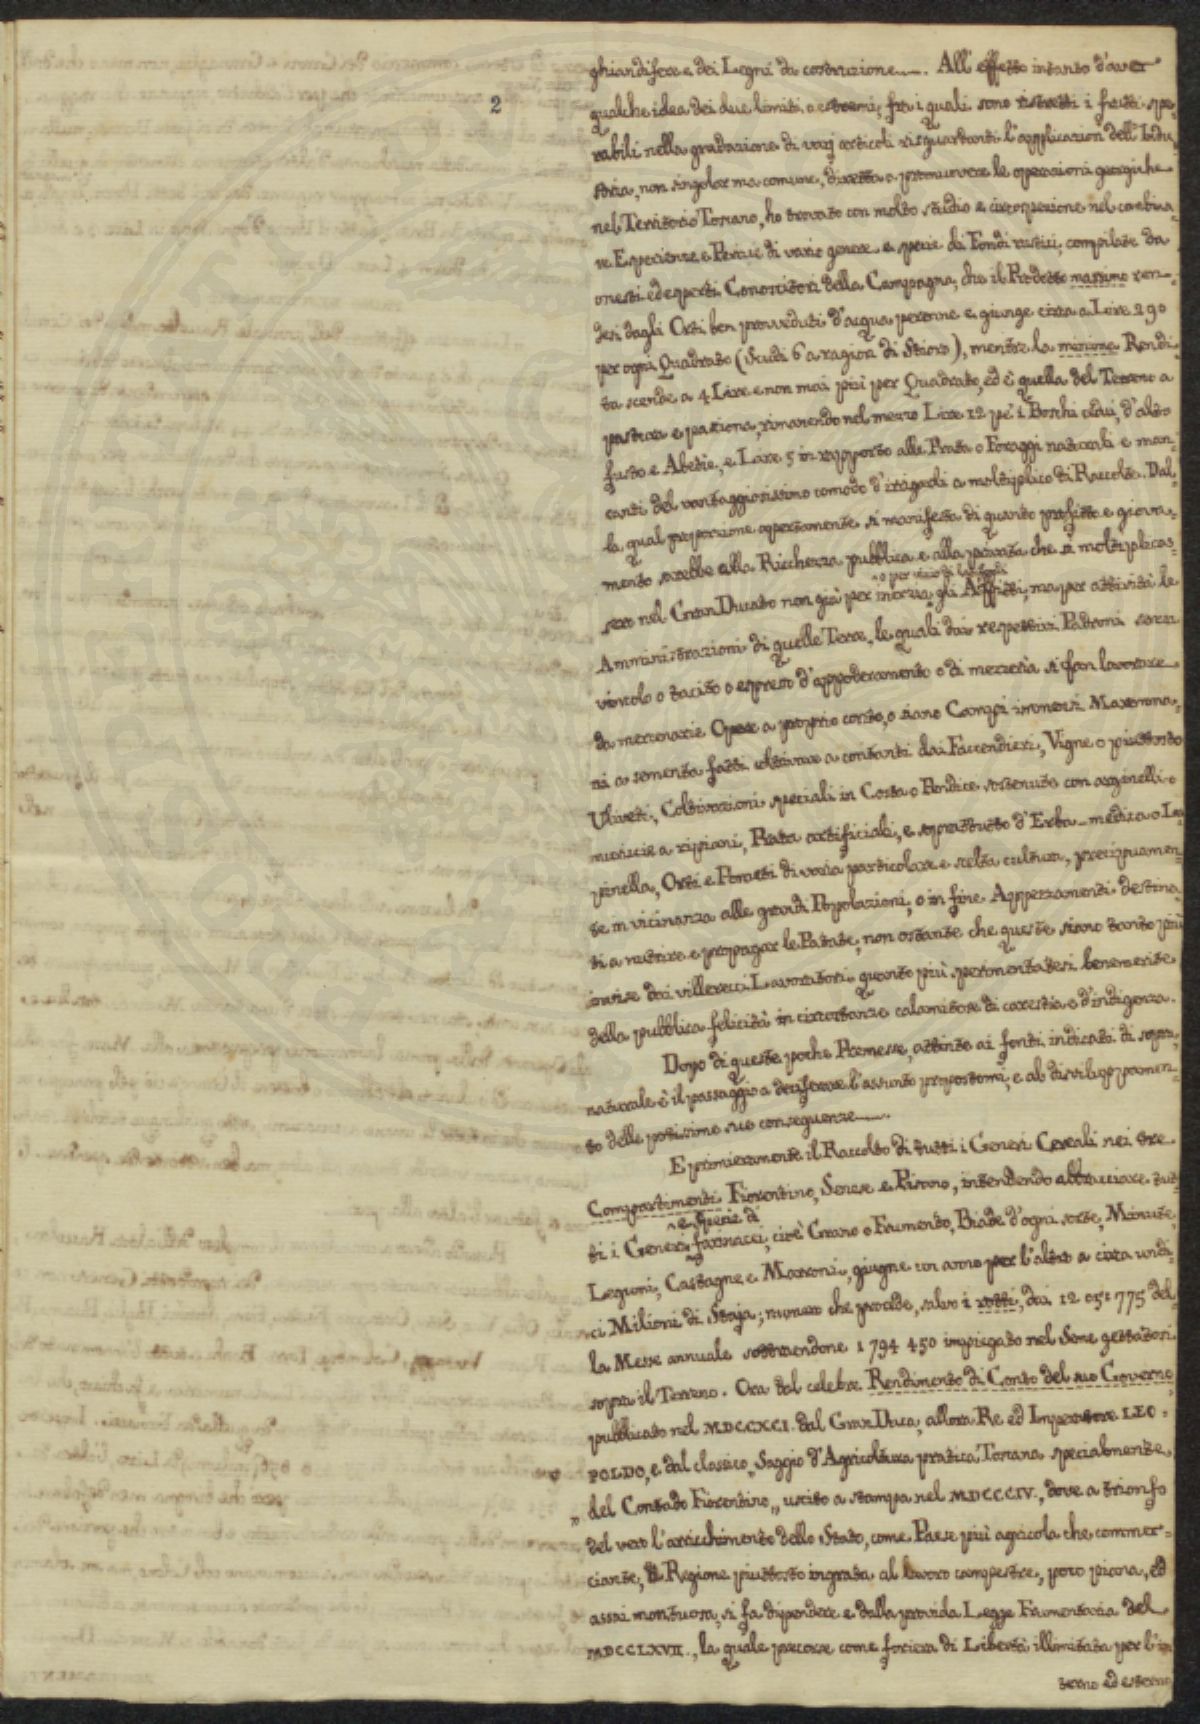 2
ghiandifere e dei Legni da costruzione__. All'effetto intanto d'aver
qualche idea dei due limiti, o estremi, fra i quali sono ristretti i frutti spe-
rabili nella gradazione di varj articoli risguardanti l'applicazion dell'Indu-
stria, non singolar ma comune, diretta a promuovere le operazioni georgiche
nel Territorio Toscano, ho trovato con molto studio e circospezione nel combina-
re Esperienze e Perizie di vario genere e specie di Fondi rustici, compilate da
onesti ed esperti Conoscitori della Campagna, che il Prodotto massimo ren-
desi dagli Orti ben provveduti d'acqua perenne e giunge circa a Lire 290
per ogni Quadrato (Scudi 6 a ragion di Stioro), mentre la menoma Rendi-
ta scende a 4 Lire e non mai più per Quadrato, ed è quella del Terreno a
pastura e pasciona, rimanendo nel mezzo Lire 12 pe' i Boschi cedui, d'alto
fusto e Abetie, e Lire 5 in rapporto alle Prata o Foraggi naturali e man-
canti del vantaggiosissimo comodo d'irrigarli a moltiplico di Raccolte. Dal-
la qual proporzione apertamente si manifesta di quanto profitto e giova-
mento sarebbe alla Ricchezza pubblica e alla privata che si moltiplicas-
o per vizio di
sero nel Gran Ducato non già per inerzia gli Affitti, ma per attività le
Amministrazioni di quelle Terre, le quali dai respettivi Padroni senza
vincolo o tacito o espresso d'appoderamento o di mezzeria si fan lavorare
da mercenarie Opere a proprio conto, o siano Campi immensi Maremma-
ni a sementa fatti coltivare a contanti dai Faccendieri, Vigne o piuttosto
Uliveti, Coltivazioni speciali in Costa o Pendice sostenute con arginelli o
muricce a ripiani, Prata artificiali, e soprattutto d'Erba-medica o Lu-
pinella, Orti e Pometi di varia particolare e scelta cultura, precipuamen-
te in vicinanza alle grandi Popolazioni, o in fine Appezzamenti destina-
ti a nutrire e propagar le Patate, non ostante che queste siano tanto più
invise dai villerecci Lavoratori quanto più sperimentatesi benemerite
della pubblica felicità in circostanze calamitose di carestia e d'indigenza.
Dopo di queste poche Premesse, attinte ai fonti indicati di sopra,
naturale è il passaggio a discifrare l'assunto propostomi, e al disviluppamen-
to delle potissime sue conseguenze__.
E primieramente il Raccolto di tutti i Generi Cereali nei tre
Compartimenti Fiorentino, Senese e Pisano, intendendo abbracciare tut-
e specie di
ti i Generi farinacei, cioè Grano o Frumento, Biade d'ogni sorte, Minute,
Legumi, Castagne e Marroni, giugne un anno per l'altro a circa undi-
ci Milioni di Staja; numero che procede, salvo i rotti, dai 12 051 775 del-
la Messe annuale sottraendone 1 794 450 impiegato nel Seme gettatosi
sopra il Terreno. Ora dal celebre Rendimento di Conto del suo Governo
pubblicato nel MDCCXCI. dal Gran Duca, allora Re ed Imperatore LEO-
POLDO, e dal classico „Saggio d'Agricoltura pratica Toscana specialmente
„ del Contado Fiorentino„ uscito a stampa nel MDCCCIV., dove a trionfo
del vero l'arricchimento dello Stato, come Paese più agricola che commer-
ciante, Regione piuttosto ingrata al lavoro campestre, poco piana, ed
assai montuosa, si fa dipendere e dalla provida Legge Frumentaria del
MDCCLXVII., la quale precorse come foriera di Libertà illimitata per l'in-
terno ed esterno